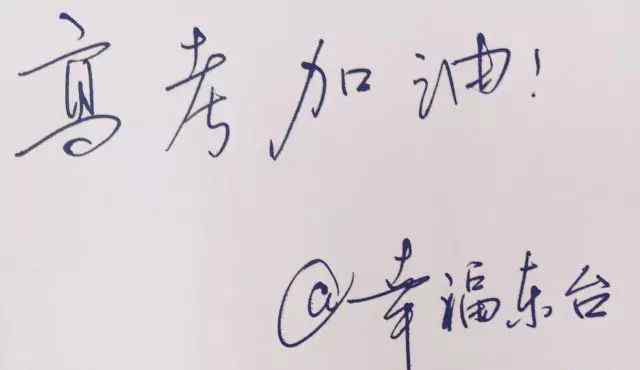 高考加油!
@幸福东台